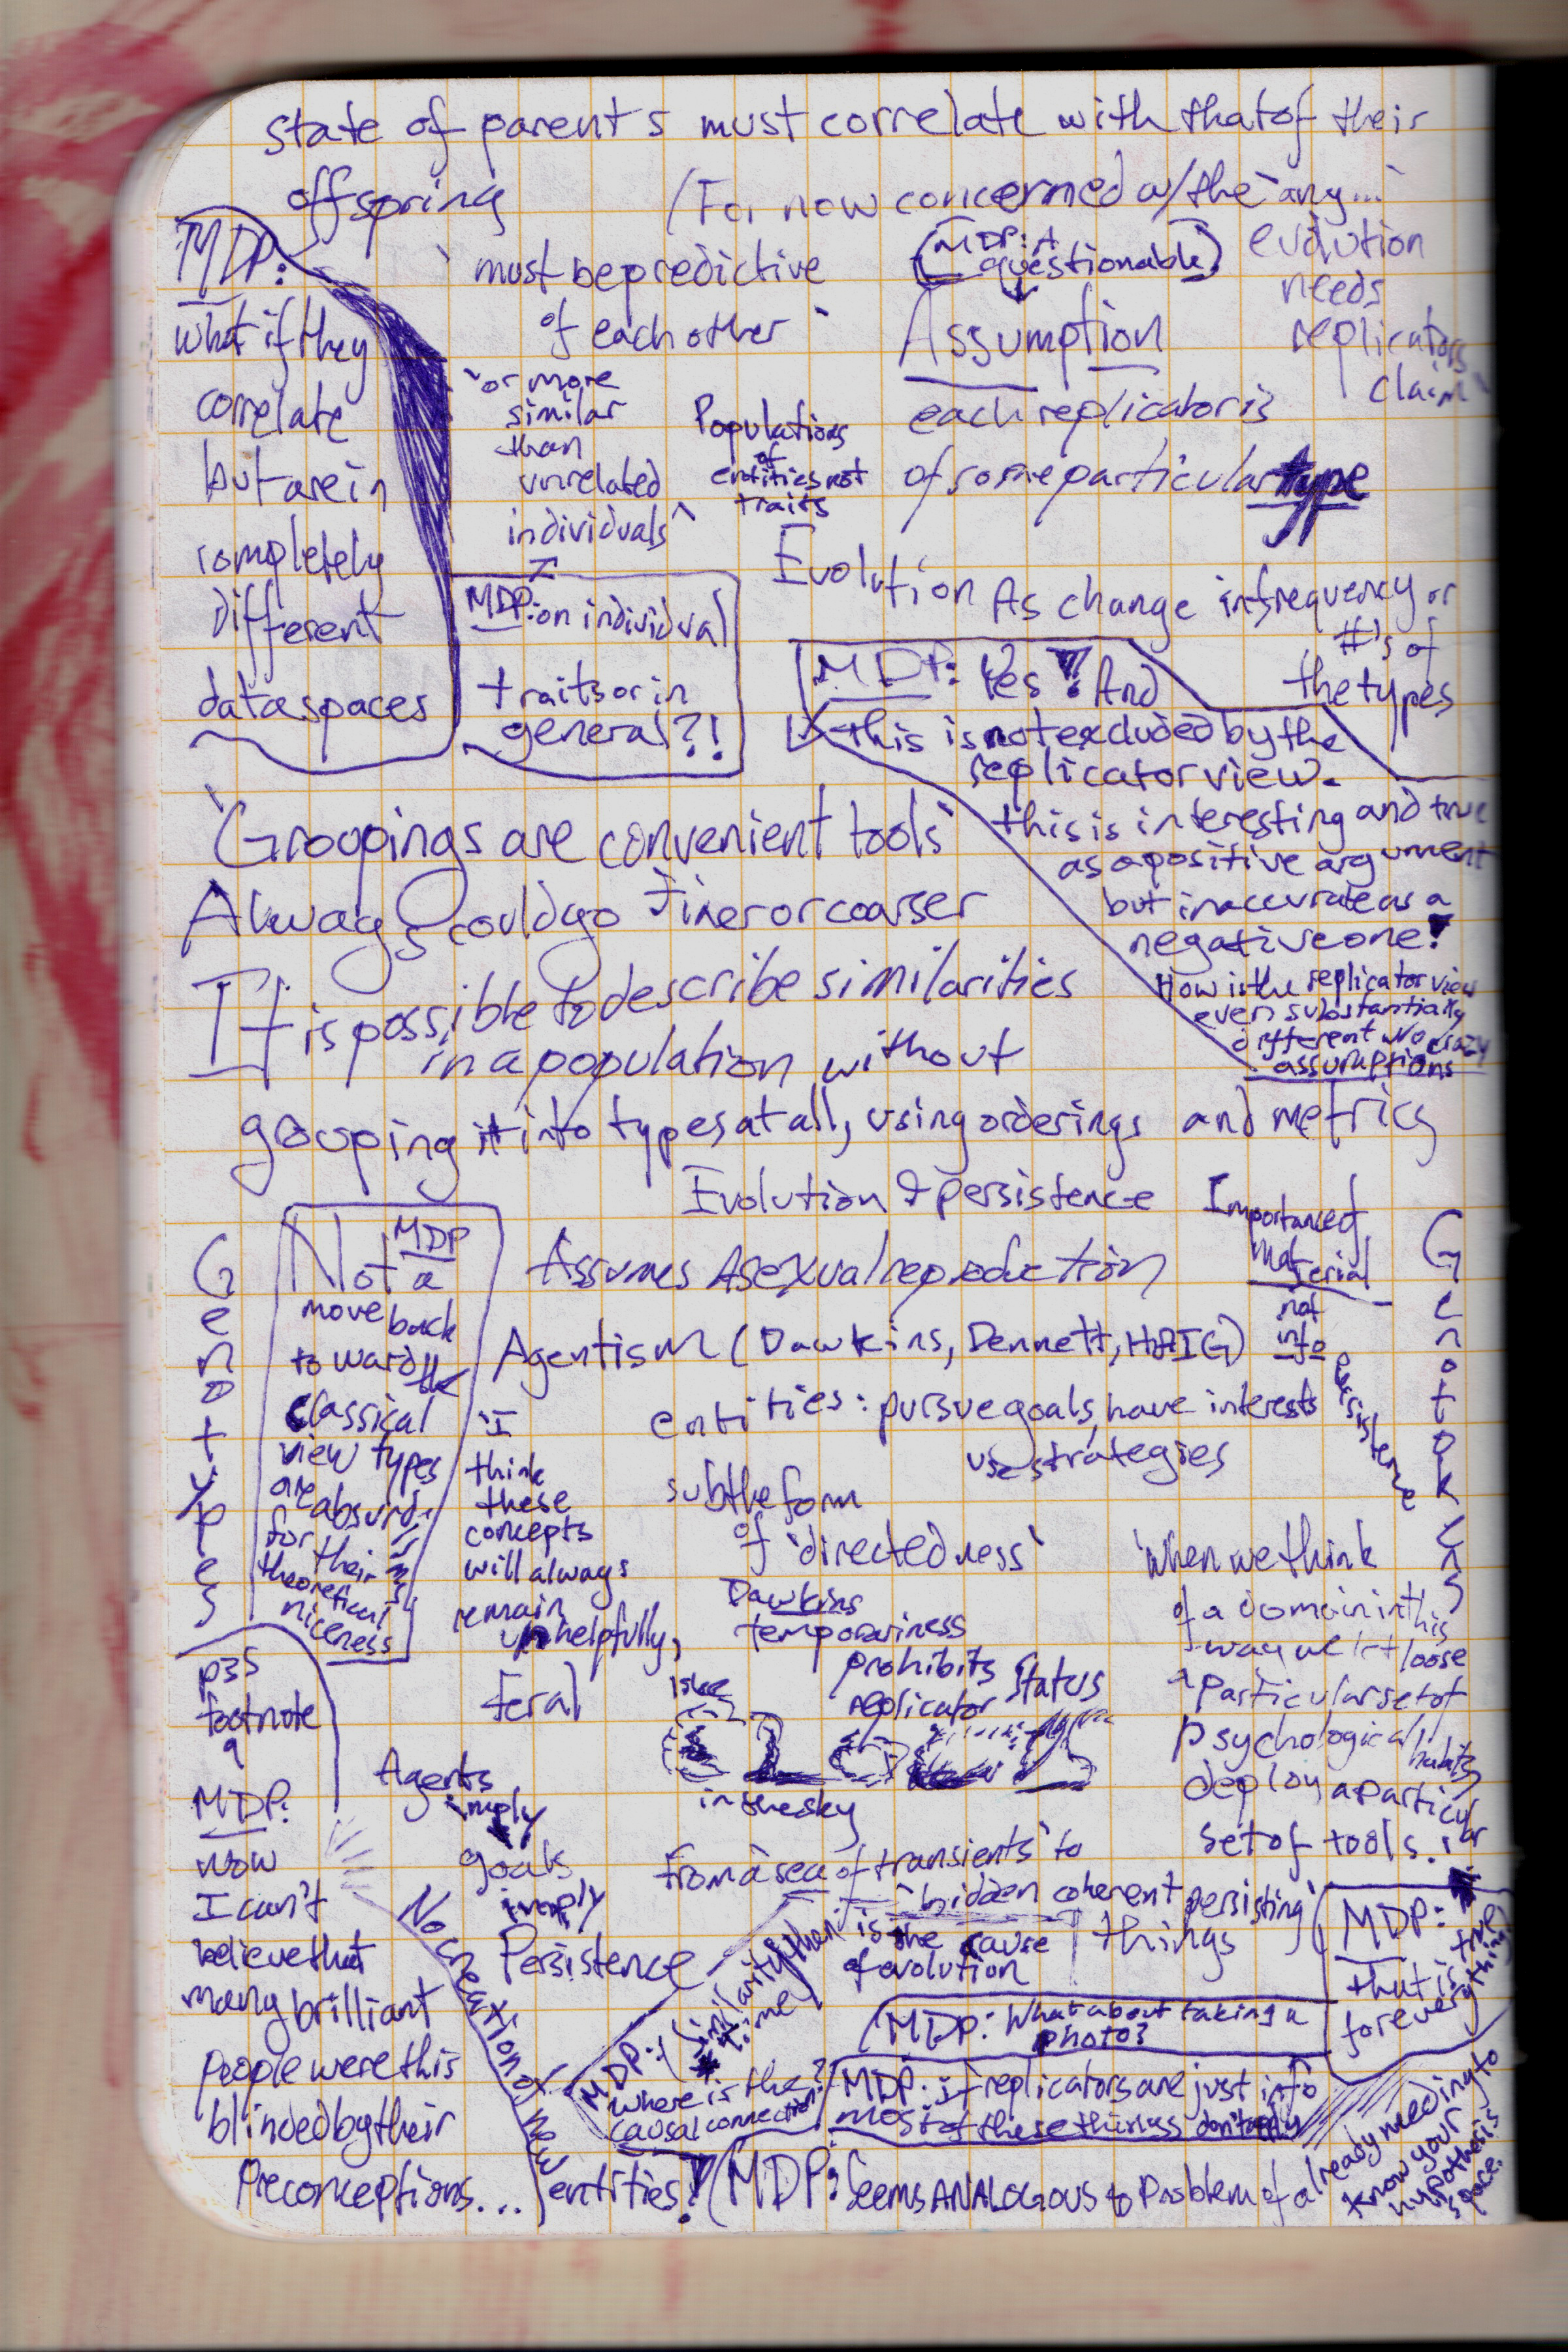 state of parents must correlate with that of their
offspring
(For now concerned w/the `any...
evolution
needs
replicators
claim`
MDP:
what if they
correlate
but are in
completely
different
data spaces
`must be predictive
of each other`
`or more
similar
than
unrelated
individuals`
MDP: on individual
traits or in
general?!
(MDP: A
questionable)
Assumption
each replicator is
of some particular type
Populations
of
entities not
traits
Evolution As change in frequency or
#'s of
the types
MDP: Yes! And
this is not excluded by the
replicator view.
this is interesting and true
as a positive argument
but inaccurate as a
negative one!
How is the replicator view
even substantially
different w/o crazy
assumptions
`Groupings are convenient tools`
Always could go finer or coarser
It is possible to describe similarities
in a population without
grouping it into types at all, using orderings and metrics
Evolution & persistence
Genotypes
MDP
Not a
move back
toward the
classical
view types
are absurd
for their
theoretical
niceness
Assumes Asexual reproduction
Importance of
material
not
info
persistence
Genotokens
Agentism (Dawkins, Dennett, HAIG)
entities: pursue goals, have interests
use strategies
`I
think
these
concepts
will always
remain
unhelpfully,
feral
subtle form
of `directedness`
Dawkins
temporariness
prohibits
replicator status
like
clouds
in the sky
`when we think
of a domain in this
way we let loose
a particular set of
psychological habits,
deploy a particular
set of tools.`
MDP:
that is true
for everything
p35
footnote
9
MDP:
now
I can't
believe that
many brilliant
people were this
blinded by their
preconceptions...
Agents
imply
goals
imply
Persistence
No creation of new
entities!
from a `sea of transients` to
`hidden coherent persisting`
things
is the cause
of evolution
MDP: (similarity then
time
where is the
causal connection?
MDP: What about taking a
photo?
MDP: if replicators are just info
most of these things don't apply
(MDP: Seems ANALOGOUS to Problem of already needing to
know your
hypothesis
space.